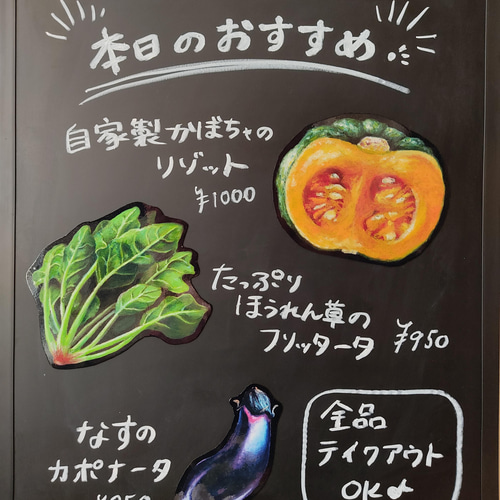 本日のおすすめ
自家製かぼちゃの
リゾット
¥1000
たっぷり
ほうれん草の
フリッタータ ¥950
なすの
カポナータ
全品
テイクアウト
OK♪